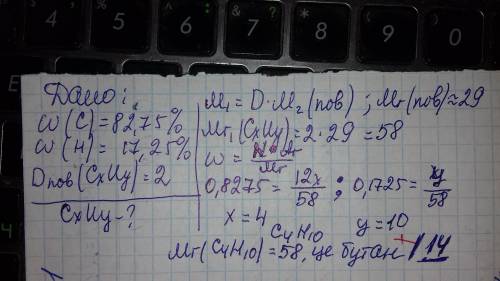 4 5 6 7 8 9 0
& ? * ( )
Дано:
w(C)=82,75%
w(H)=17,25%
Dпов(CxHy)=2
CxHy-?
M₁=D·M₂(пов) ; Mr(пов)≈29
Mr₁(CxHy)=2·29=58
w=N·Ar/Mr
0,8275=12x/58 ; 0,1725=y/58
x=4 y=10
C4H10
Mr(C4H10)=58, це бутан
14